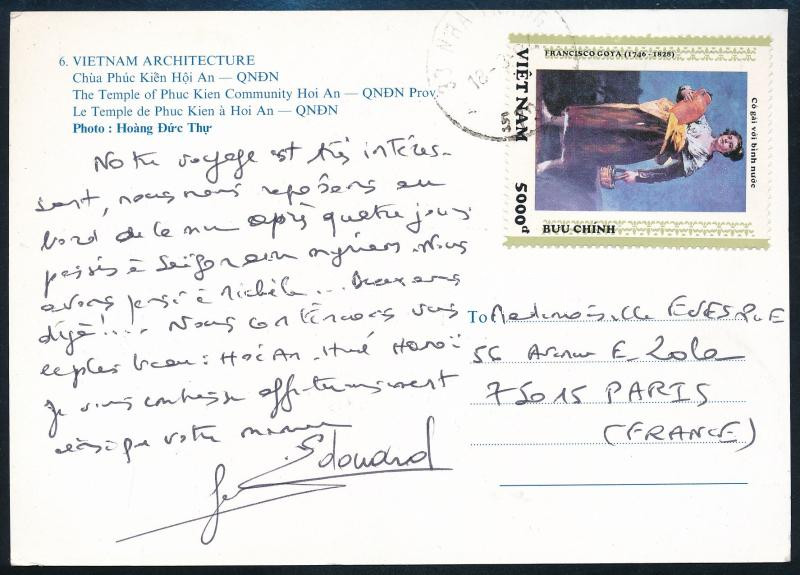 6. VIETNAM ARCHITECTURE
Chùa Phúc Kiến Hội An — QNĐN
The Temple of Phuc Kien Community Hoi An — QNĐN Prov.
Le Temple de Phuc Kien à Hoi An — QNĐN
Photo : Hoàng Đức Thự
Notre voyage est très intéres-
sant, nous nous reposons au
bord de la mer après quatre jours
passés à Saïgon et
Nous
avons pensé à Michèle... Deux ans
déjà!... Nous continuons vers
Hoi An, Hué, Hanoï
Je vous embrasse affectueusement
ainsi que votre maman
Edouard
FRANCISCO GOYA (1746 - 1828)
VIỆT NAM
5000đ
BƯU CHÍNH
Cô gái với bình nước
To Mademoiselle EVESQUE
56 Avenue E Zola
75015 PARIS
(FRANCE)